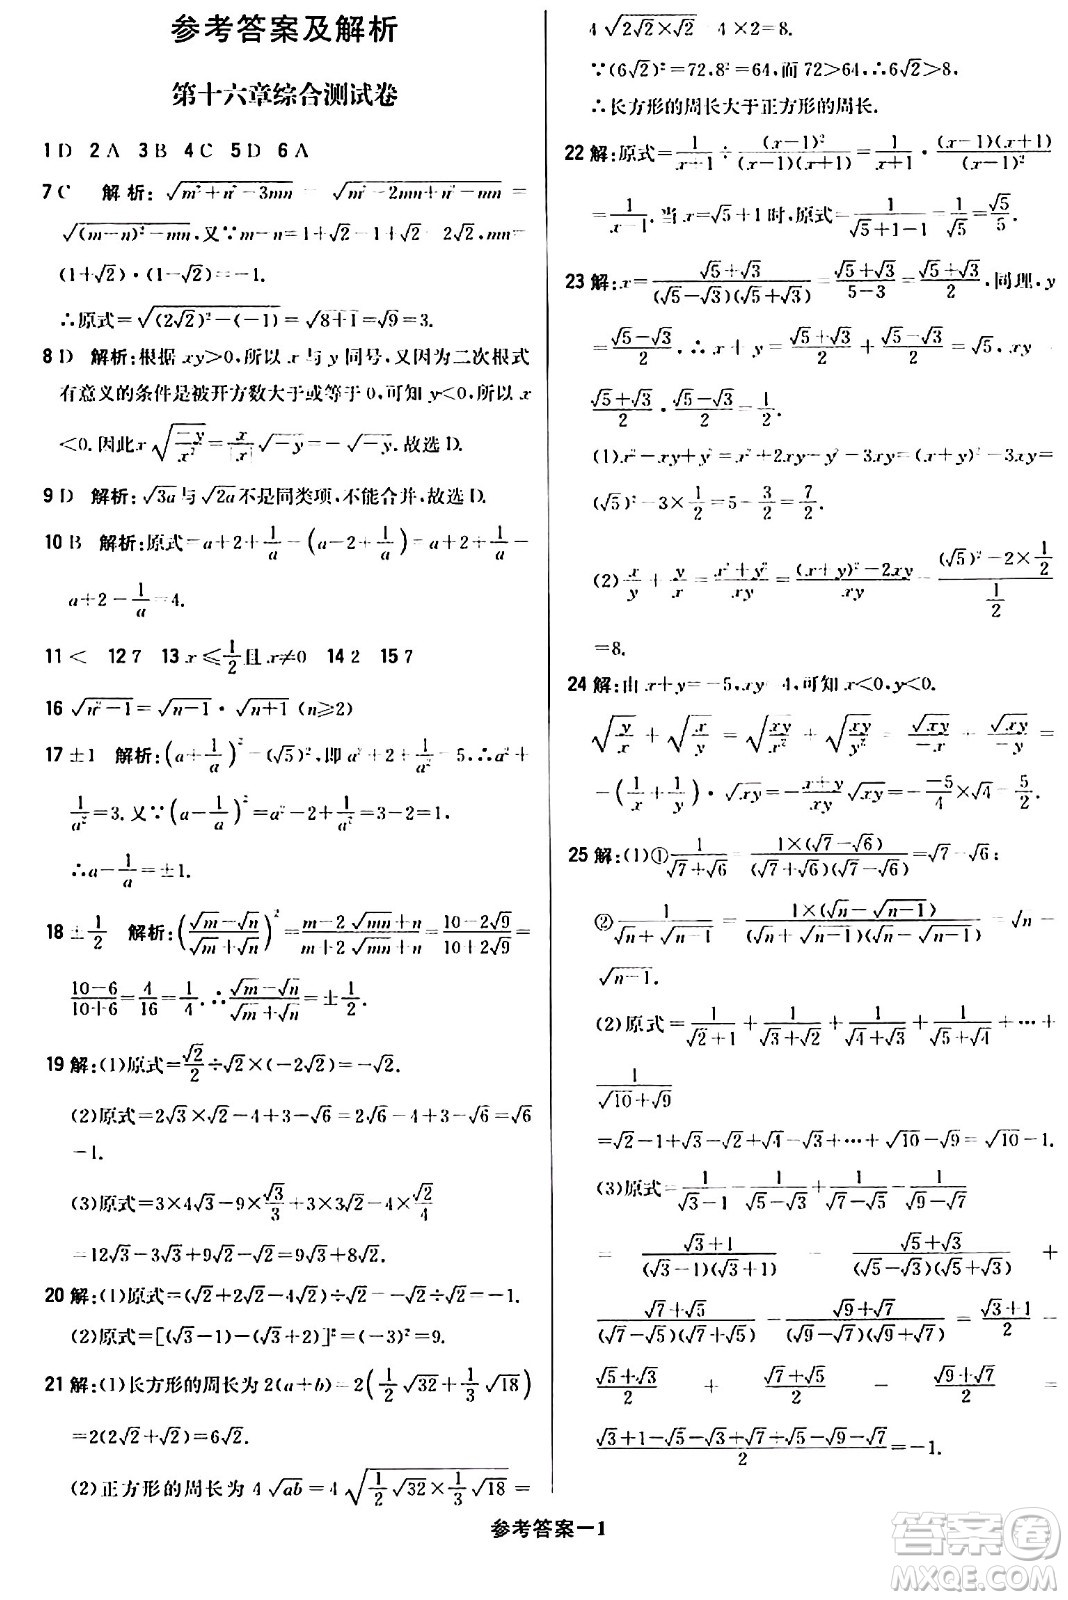 参考答案及解析
第十六章综合测试卷
1 D 2 A 3 B 4 C 5 D 6 A
7 C 解析:√(m²+n²-3mn) = √(m²-2mn+n²-mn) =
√((m-n)²-mn),又∵m-n=1+√2-1+√2=2√2,mn=
(1+√2)·(1-√2)=-1.
∴原式=√((2√2)²-(-1))=√(8+1)=√9=3.
8 D 解析:根据xy>0,所以x与y同号,又因为二次根式
有意义的条件是被开方数大于或等于0,可知y<0,所以x
<0.因此x√(-y/x²)=x/|x|√-y=-√-y.故选D.
9 D 解析:√3a与√2a不是同类项,不能合并,故选D.
10 B 解析:原式=a+2+1/a-(a-2+1/a)=a+2+1/a-
a+2-1/a=4.
11 < 12 7 13 x≤1/2且x≠0 14 2 15 7
16 √(n²-1)=√(n-1)·√(n+1)(n≥2)
17 ±1 解析:(a+1/a)²=(√5)²,即a²+1/a²+2=5.∴a²+
1/a²=3.又∵(a-1/a)²=a²+1/a²-2=3-2=1,
∴a-1/a=±1.
18 ±1/2 解析:((√m-√n)/(√m+√n))²=(m-2√mn+n)/(m+2√mn+n)=(10-2√9)/(10+2√9)=
(10-6)/(10+6)=4/16=1/4.∴(√m-√n)/(√m+√n)=±1/2.
19 解:(1)原式=√2/2÷√2×(-2√2)=-√2.
(2)原式=2√3×√2-4+3-√6=2√6-4+3-√6=√6
-1.
(3)原式=3×4√3-9×√3/3+3×3√2-4×√2/4
=12√3-3√3+9√2-√2=9√3+8√2.
20 解:(1)原式=(√2+2√2-4√2)÷√2=-√2÷√2=-1.
(2)原式=[(√3-1)-(√3+2)]²=(-3)²=9.
21 解:(1)长方形的周长为2(a+b)=2(1/2√32+1/3√18)
=2(2√2+√2)=6√2.
(2)正方形的周长为4√ab=4√(1/2√32×1/3√18)=
4√(2√2×√2)=4×2=8.
∵(6√2)²=72,8²=64,而72>64,∴6√2>8.
∴长方形的周长大于正方形的周长.
22 解:原式=1/(x+1)÷(x-1)²/((x-1)(x+1))=1/(x+1)·(x-1)(x+1)/(x-1)²
=1/(x-1).当x=√5+1时,原式=1/(√5+1-1)=1/√5=√5/5.
23 解:x=(√5+√3)/((√5-√3)(√5+√3))=(√5+√3)/(5-3)=(√5+√3)/2,同理,y
=(√5-√3)/2.∴x+y=(√5+√3)/2+(√5-√3)/2=√5,xy=
(√5+√3)/2·(√5-√3)/2=1/2.
(1)x²-xy+y²=x²+2xy+y²-3xy=(x+y)²-3xy=
(√5)²-3×1/2=5-3/2=7/2.
(2)x/y+y/x=(x²+y²)/xy=((x+y)²-2xy)/xy=((√5)²-2×1/2)/(1/2)
=8.
24 解:由x+y=-5,xy=4,可知x<0,y<0.
√(y/x)+√(x/y)=√(xy/x²)+√(xy/y²)=√xy/-x+√xy/-y=
-(1/x+1/y)·√xy=-(x+y)/xy√xy=-(-5)/4×√4=5/2.
25 解:(1)①1/(√7+√6)=1×(√7-√6)/((√7+√6)(√7-√6))=√7-√6;
②1/(√n+√(n-1))=1×(√n-√(n-1))/((√n+√(n-1))(√n-√(n-1)))=√n-
√(n-1).
(2)原式=1/(√2+1)+1/(√3+√2)+1/(√4+√3)+1/(√5+√4)+…+
1/(√10+√9)
=√2-1+√3-√2+√4-√3+…+√10-√9=√10-1.
(3)原式=1/(√3-1)-1/(√5-√3)+1/(√7-√5)-1/(√9-√7)
=(√3+1)/((√3-1)(√3+1))-(√5+√3)/((√5-√3)(√5+√3))+
(√7+√5)/((√7-√5)(√7+√5))-(√9+√7)/((√9-√7)(√9+√7))=(√3+1)/2-
(√5+√3)/2+(√7+√5)/2-(√9+√7)/2=
(√3+1-√5-√3+√7+√5-√9-√7)/2=-1.
参考答案—1
答案圈
MXQE.COM